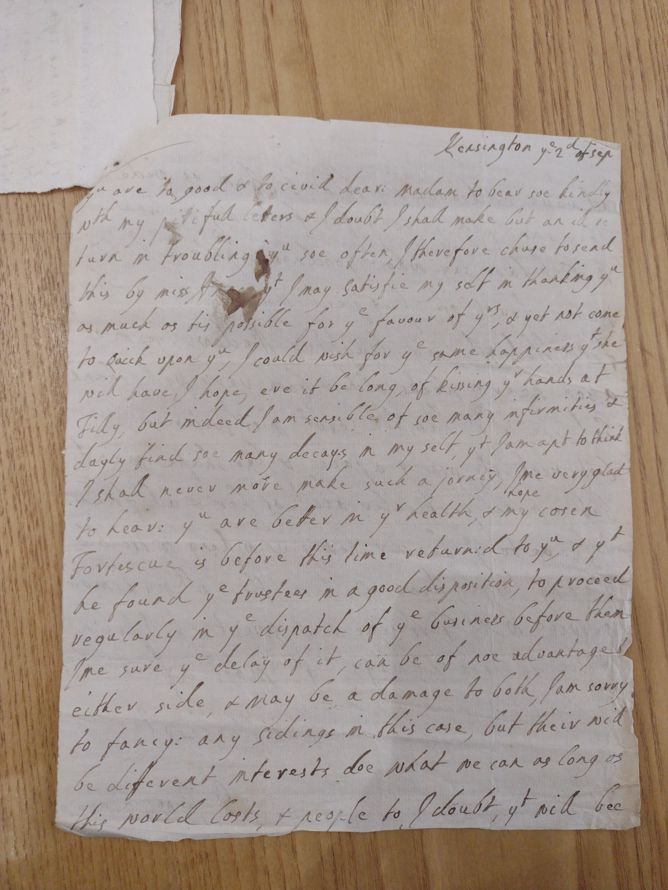 Kensington yᵉ 2ᵈ of sep
yᵘ are to good & to civill dear: madam to bear soe kindly
wᵗʰ my pitefull leters & I doubt I shall make but an ill re
turn in troubling yᵘ soe often, I therefore chuse to send
this by miss yᵗ I may satisfie my self in thanking yᵘ
as much as tis possible for yᵉ favour of yʳˢ, & yet not come
to quick upon yᵘ, I could wish for yᵉ same happiness yᵗ she
will have, I hope, ere it be long, of kissing yʳ hands at
Filly, but indeed I am sensible of soe many infirmities &
dayly find soe many decays in my self, yᵗ I am apt to think
I shall never more make such a jorney, I'me very glad
to hear: yᵘ are better in yʳ health, & my cosen
hope
Fortescue is before this time return:d to yᵘ, & yᵗ
he found yᵉ trustees in a good disposition, to proceed
regularly in yᵉ dispatch of yᵉ business before them
I'me sure yᵉ delay of it, can be of noe advantage t
either side, & may be a damage to both, I am sorry
to fancy: any sidings in this case, but their will
be different interests doe what we can as long as
this world lasts, & people to, I doubt, yᵗ will bee